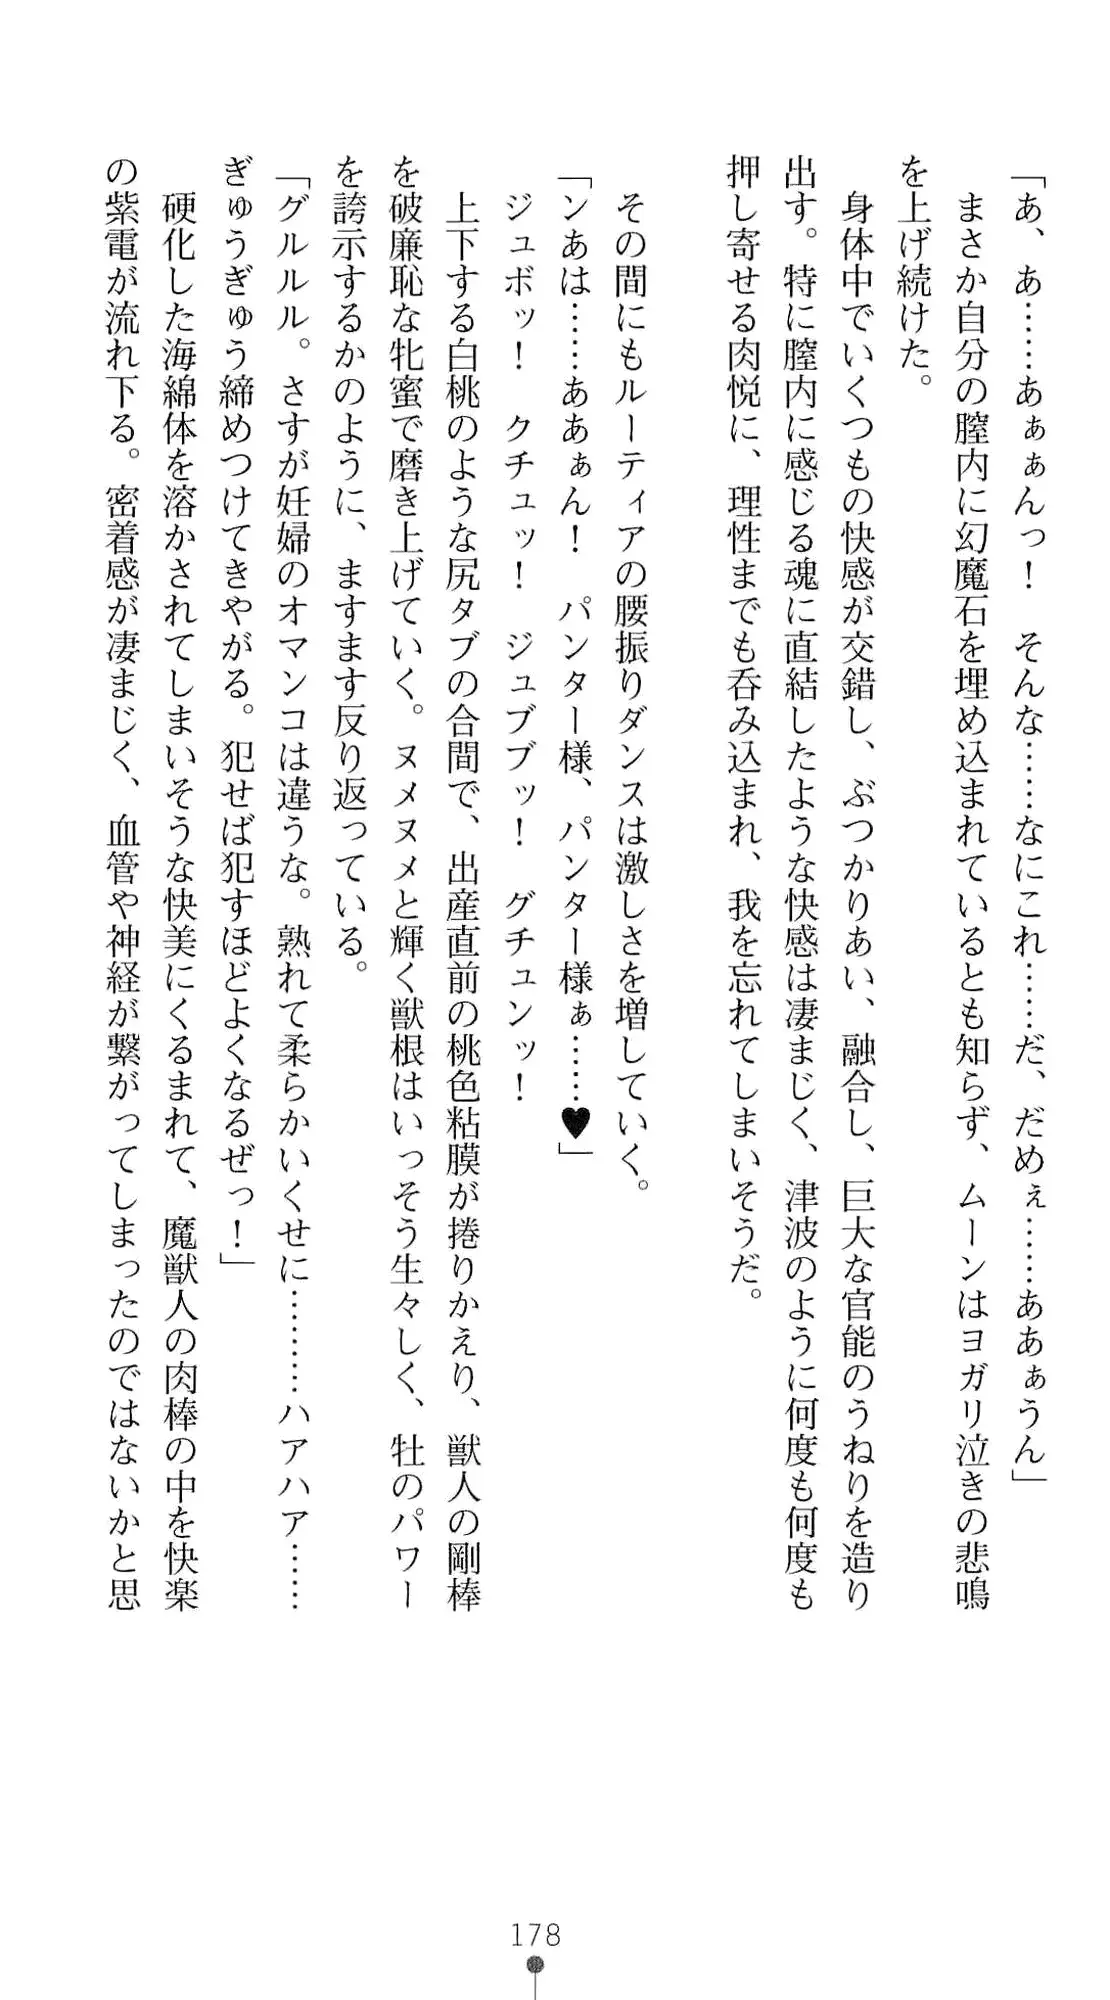 「あ、あ……あぁぁんっ！　そんな……なにこれ……だ、だめぇ……ああぁうん」
まさか自分の膣内に幻魔石を埋め込まれているとも知らず、ムーンはヨガリ泣きの悲鳴
を上げ続けた。
身体中でいくつもの快感が交錯し、ぶつかりあい、融合し、巨大な官能のうねりを造り
出す。特に膣内に感じる魂に直結したような快感は凄まじく、津波のように何度も何度も
押し寄せる肉悦に、理性までも呑み込まれ、我を忘れてしまいそうだ。
その間にもルーティアの腰振りダンスは激しさを増していく。
「ンあは……ああぁん！　パンター様、パンター様ぁ……♥」
ジュボッ！　クチュッ！　ジュブブッ！　グチュンッ！
上下する白桃のような尻タブの合間で、出産直前の桃色粘膜が捲りかえり、獣人の剛棒
を破廉恥な牝蜜で磨き上げていく。ヌメヌメと輝く獣根はいっそう生々しく、牡のパワー
を誇示するかのように、ますます反り返っている。
「グルルル。さすが妊婦のオマンコは違うな。熟れて柔らかいくせに………ハアハア……
ぎゅうぎゅう締めつけてきやがる。犯せば犯すほどよくなるぜっ！」
硬化した海綿体を溶かされてしまいそうな快美にくるまれて、魔獣人の肉棒の中を快楽
の紫電が流れ下る。密着感が凄まじく、血管や神経が繋がってしまったのではないかと思
178